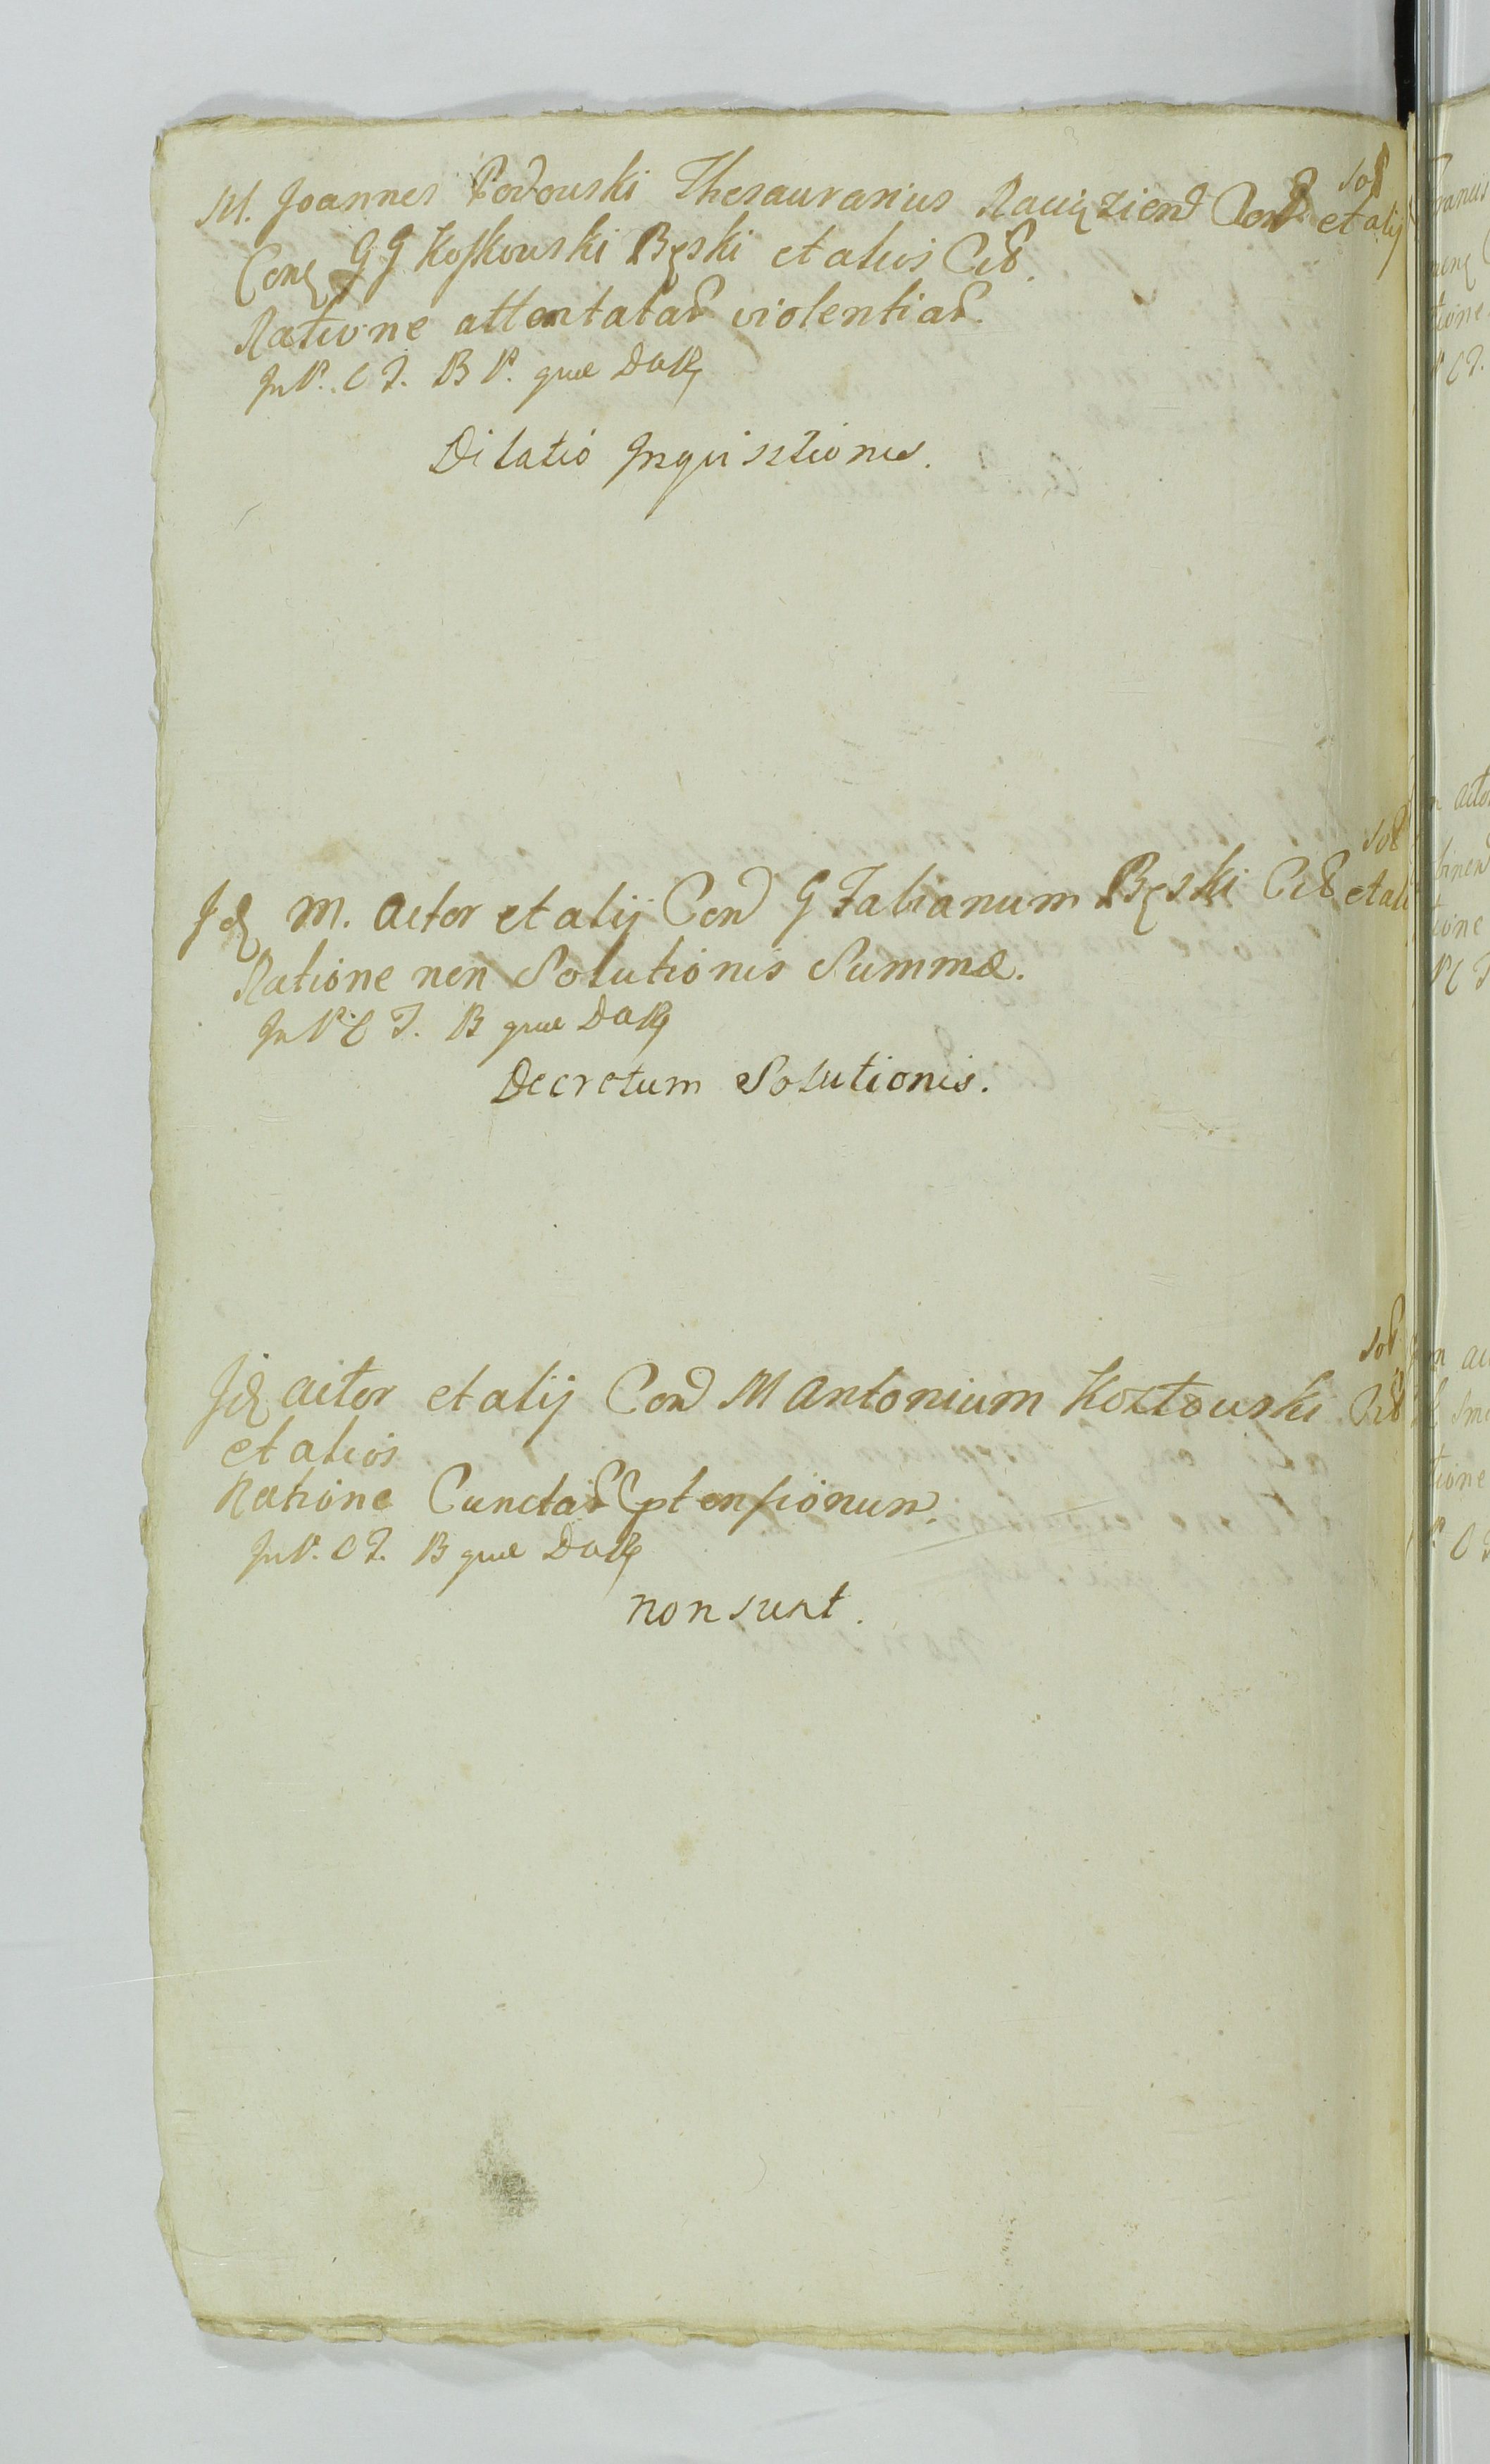 sol
M. Joannes Podowski Thesaurarius Rawę ziens Cont et alij
Cong GG Koskowski Bęski et alios Citt.
Ratione attentatar violentiar.
In P. C T. B P. quæ Dollg
Dilatio Inquisitionis.
sol
Id M. Actor et alij Con G Fabianum Bęski Citt et ali
Ratione non Solutionis Summæ.
In P C T. B quæ Dollg
Decretum Solutionis.
sol
Id actor et alij Con M Antonium Koztowski Citt
et alios
Ratione Cunctar ptensionum.
In P. C T. B quæ Dollg
non sunt.